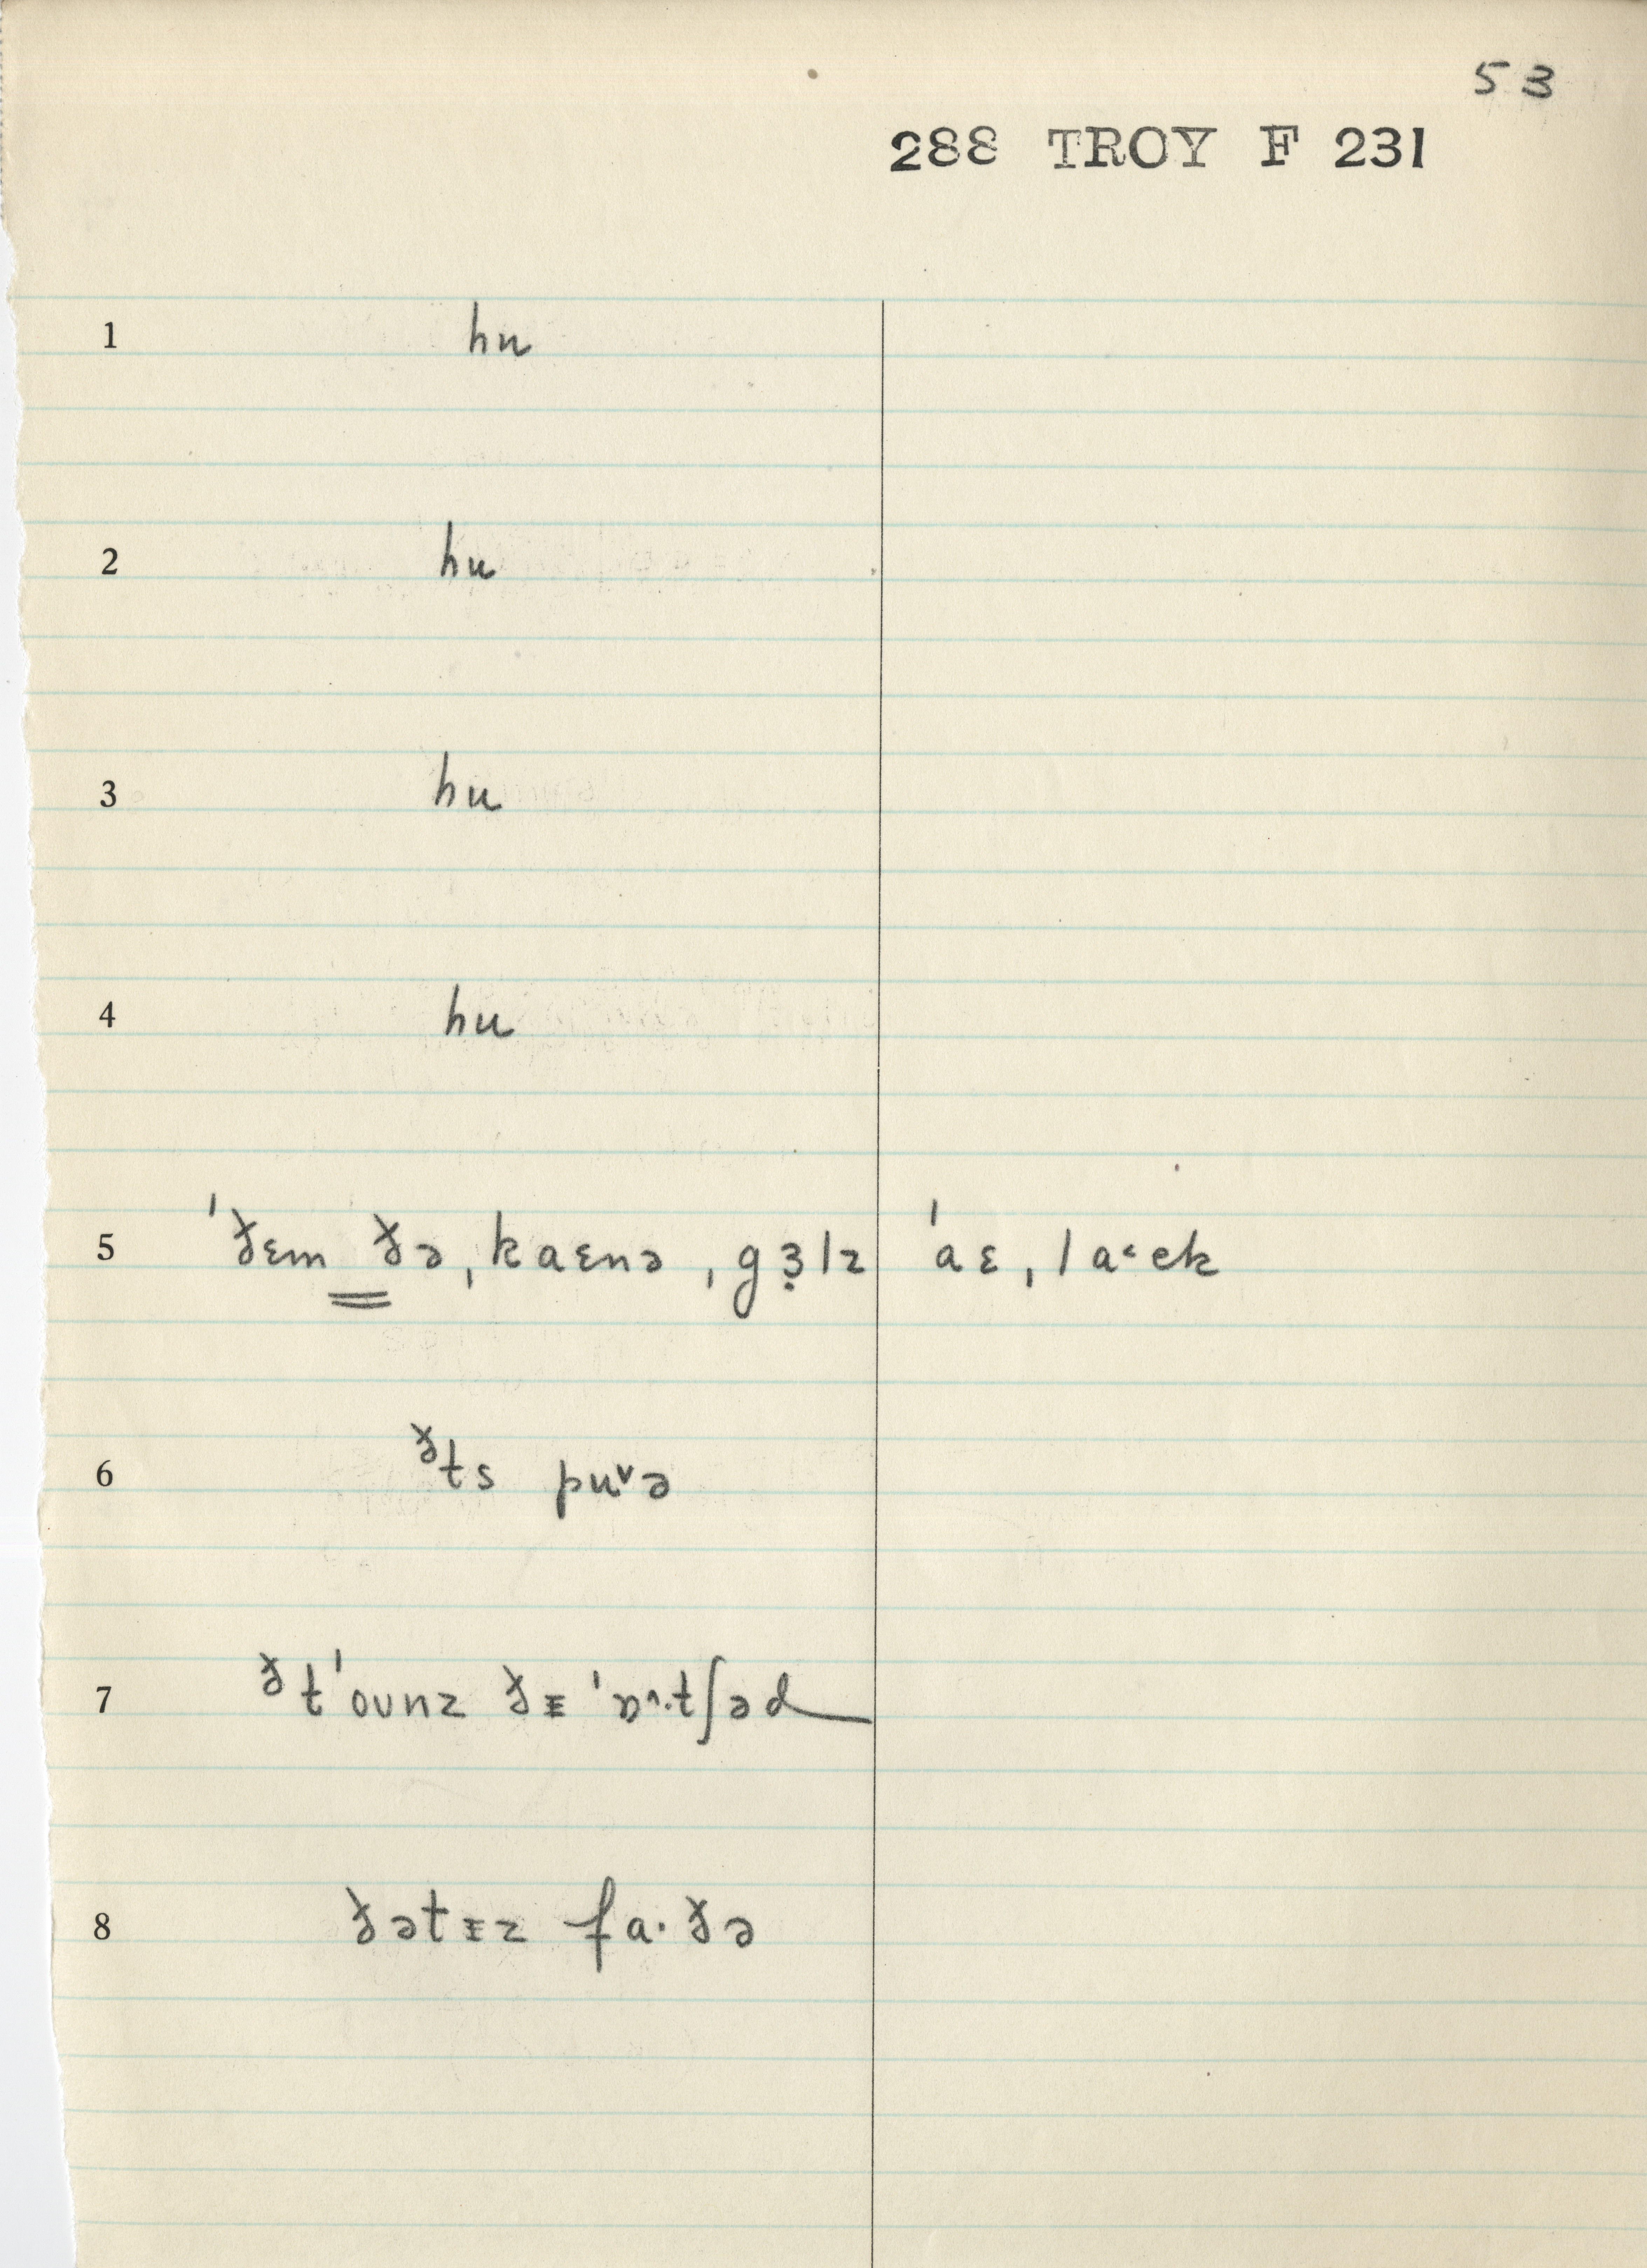 53
288 TROY F 231
1 hu
2 hu
3 hu
4 hu
5 ˈðɛm ðə ˌkaɛnə ˌgɜ̣lz ˈaɛ ˌla˂ɛk
6 ᶞts pu˅ə
7 ᶞtˈoʊnz ðᵻ ˈɒ˄·tʃəd
8 ðətᵻz fa·ðə